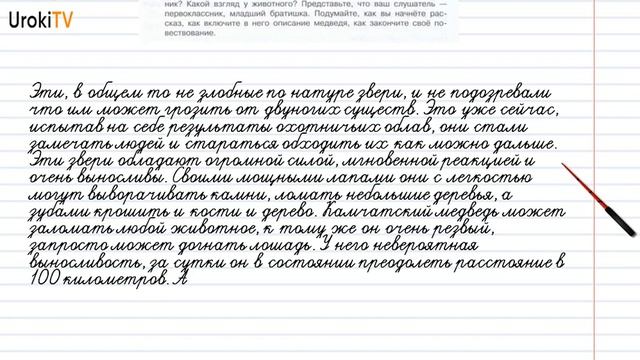 UrokiTV
ник? Какой взгляд у животного? Представьте, что ваш слушатель —
первоклассник, младший братишка. Подумайте, как вы начнёте рас-
сказ, как включите в него описание медведя, как закончите своё по-
вествование.
Эти, в общем то не злобные по натуре звери, и не подозревали
что им может грозить от двуногих существ. Это уже сейчас,
испытав на себе результаты охотничьих облав, они стали
замечать людей и стараться обходить их как можно дальше.
Эти звери обладают огромной силой, мгновенной реакцией и
очень выносливы. Своими мощными лапами они с легкостью
могут выворачивать камни, ломать небольшие деревья, а
зубами крошить и кости и дерево. Камчатский медведь может
заломать любой животное, к тому же он очень резвый,
запросто может догнать лошадь. У него невероятная
выносливость, за сутки он в состоянии преодолеть расстояние в
100 километров. А